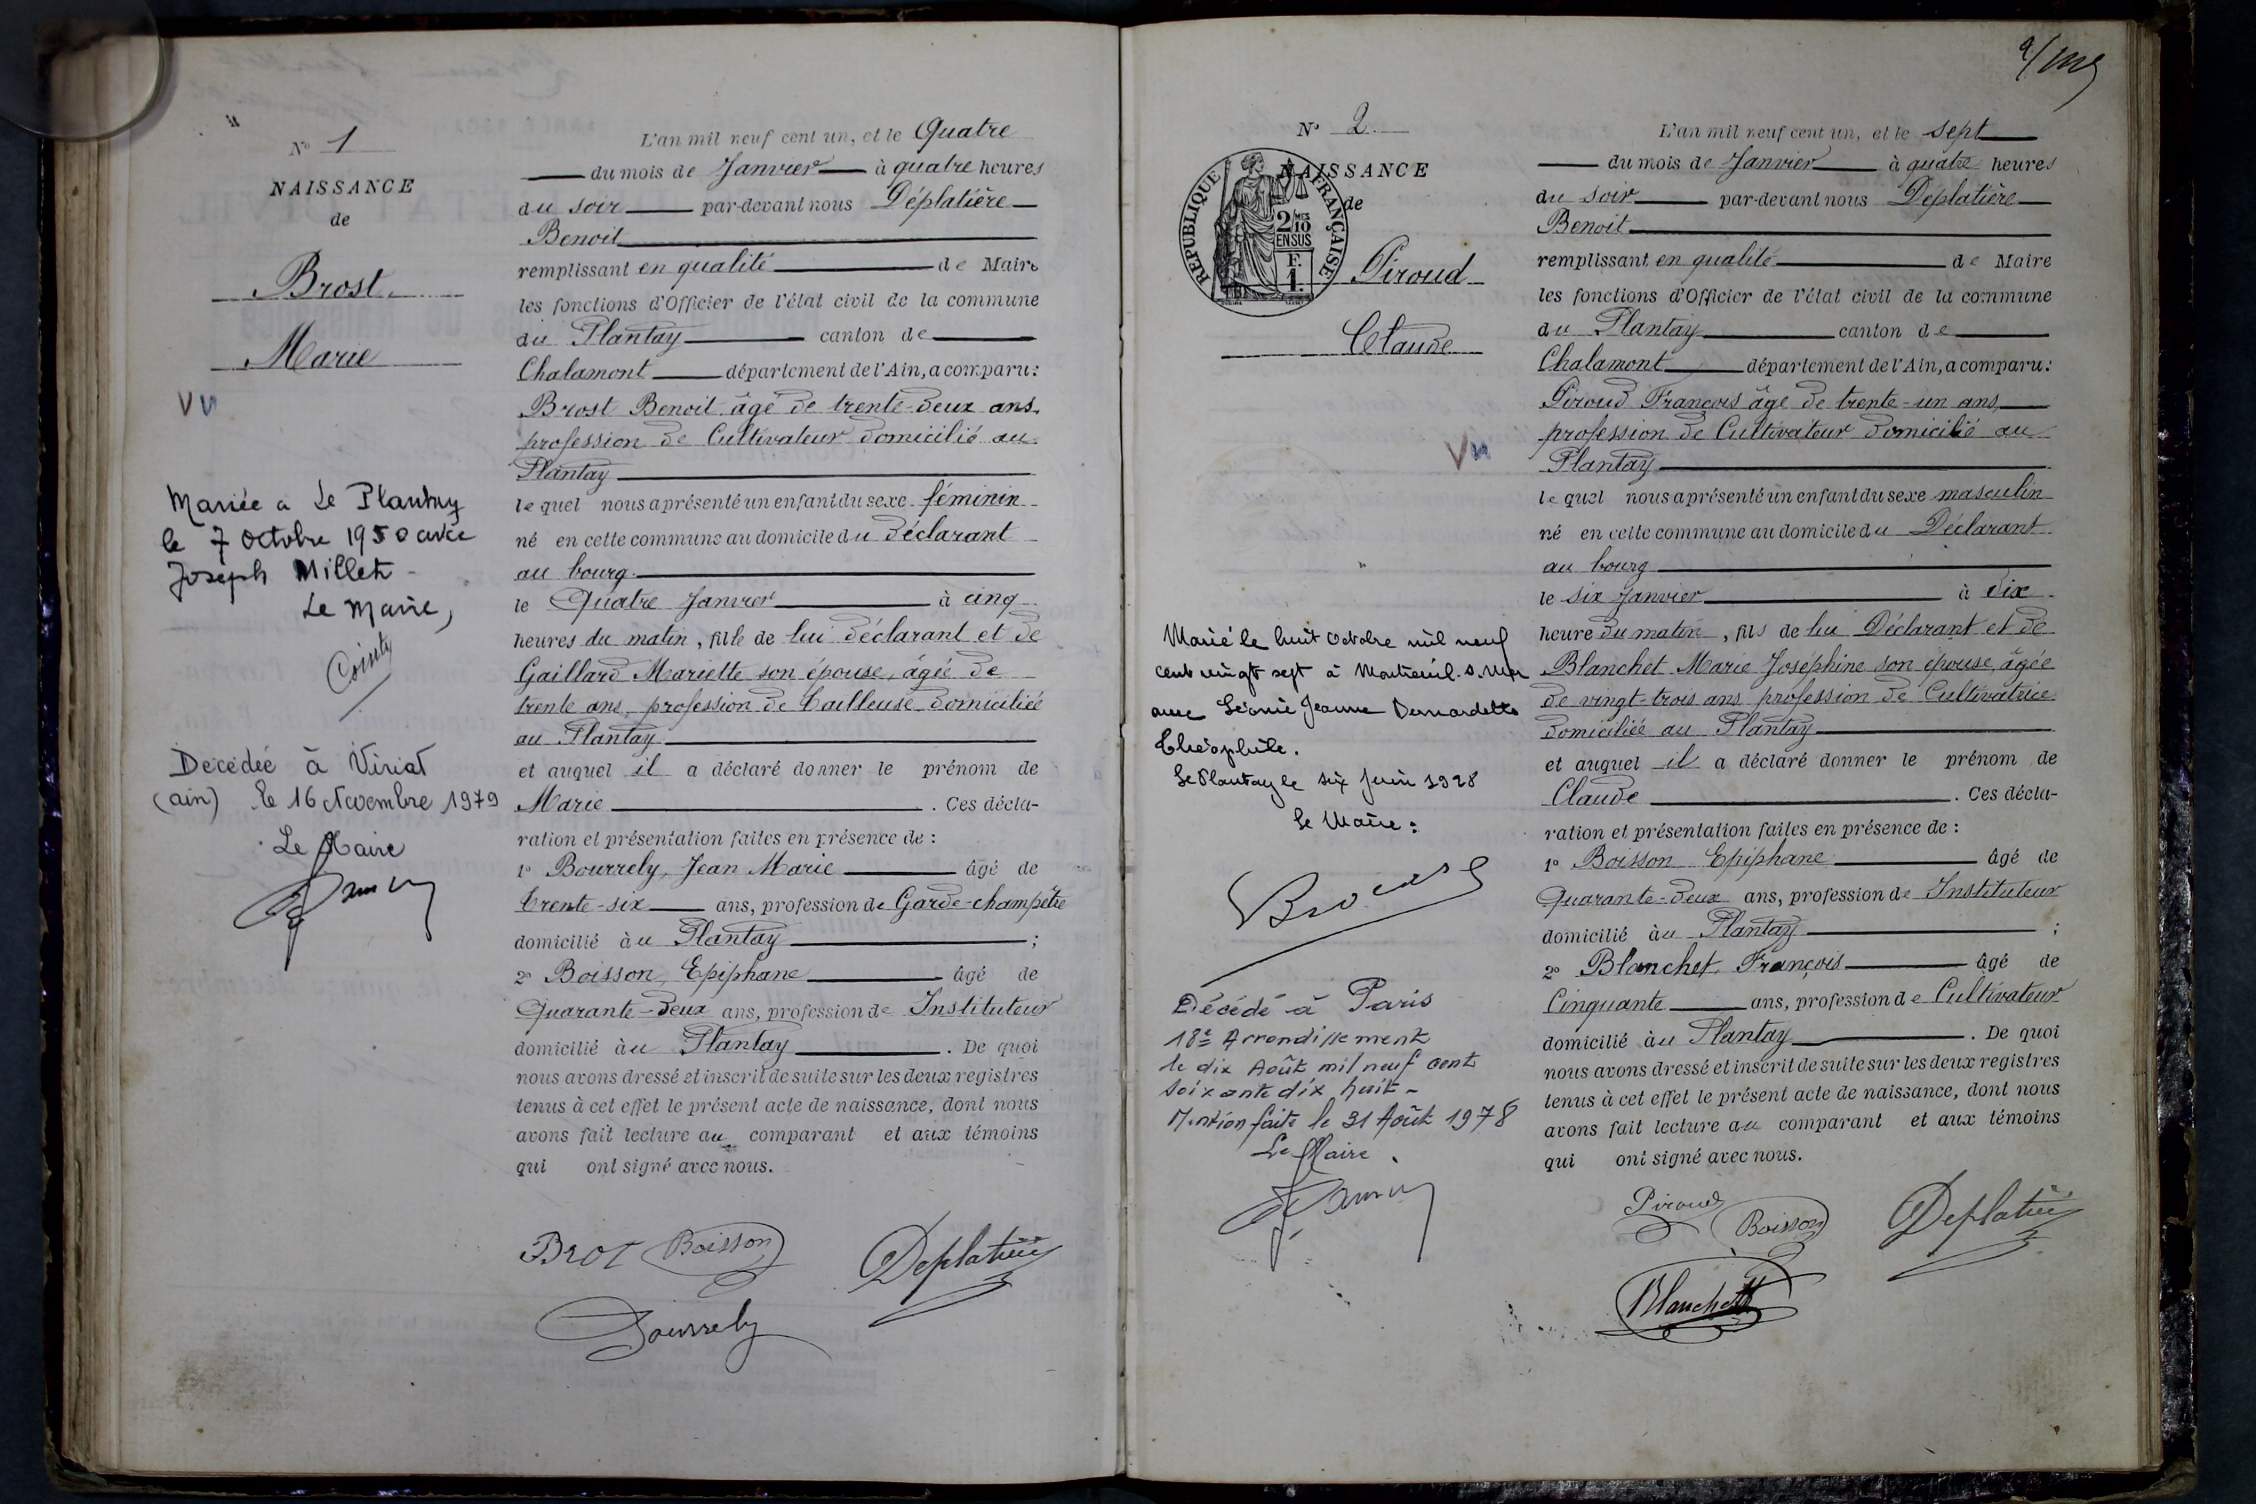 N° 1
NAISSANCE
de
Brost
Marie
Vu
Mariée a Le Plantay
le 7 octobre 1950 avec
Joseph Millet -
Le Maire,
Décédée à Viriat
(ain) le 16 Novembre 1979
Le Maire
L'an mil neuf cent un, et le Quatre
du mois de Janvier à quatre heures
du soir par-devant nous Déplatière
Benoit
remplissant en qualité de Maire
les fonctions d'Officier de l'état civil de la commune
du Plantay canton de
Chalamont département de l'Ain, a comparu:
Brost Benoit âgé de trente-deux ans
profession de Cultivateur domicilié au
Plantay
le quel nous a présenté un enfant du sexe féminin
né en cette commune au domicile du déclarant
au bourg
le Quatre Janvier à cinq
heures du matin, fille de lui déclarant et de
Gaillard Mariette son épouse, âgée de
trente ans, profession de Tailleuse domiciliée
au Plantay
et auquel il a déclaré donner le prénom de
Marie . Ces décla-
ration et présentation faites en présence de :
1° Bourrely, Jean Marie âgé de
trente-six ans, profession de Garde-champêtre
domicilié àu Plantay ;
2° Boisson, Epiphane âgé de
Quarante-deux ans, profession de Instituteur
domicilié àu Plantay . De quoi
nous avons dressé et inscrit de suite sur les deux registres
tenus à cet effet le présent acte de naissance, dont nous
avons fait lecture au comparant et aux témoins
qui ont signé avec nous.
Brot Boisson Deplatière
Bourrely
N° 2
NAISSANCE
de
RÉPUBLIQUE FRANÇAISE
2/10 MES
EN SUS
F.
1.
Piroud
Claude
Vu
Marié le huit octobre mil neuf
cent vingt sept à Montreuil-s.-Mer
avec Léonie Jeanne Bernardette
Théophile.
Le Plantay le six Juin 1928
Le Maire :
Décédé à Paris
18e Arrondissement
le dix Août mil neuf cent
soixante dix huit -
Mention faite le 31 Août 1978
Le Maire.
L'an mil neuf cent un, et le sept
du mois de Janvier à quatre heures
du soir par-devant nous Déplatière
Benoit
remplissant en qualité de Maire
les fonctions d'Officier de l'état civil de la commune
du Plantay canton de
Chalamont département de l'Ain, a comparu:
Piroud François âgé de trente-un ans,
profession de Cultivateur domicilié au
Plantay
le quel nous a présenté un enfant du sexe masculin
né en cette commune au domicile du Déclarant
au bourg
le six Janvier à dix
heure du matin, fils de lui Déclarant et de
Blanchet Marie Joséphine son épouse, âgée
de vingt-trois ans profession de Cultivatrice
domiciliée au Plantay
et auquel il a déclaré donner le prénom de
Claude . Ces décla-
ration et présentation faites en présence de :
1° Boisson Epiphane âgé de
Quarante-deux ans, profession de Instituteur
domicilié àu Plantay ;
2° Blanchet, François âgé de
Cinquante ans, profession de Cultivateur
domicilié àu Plantay . De quoi
nous avons dressé et inscrit de suite sur les deux registres
tenus à cet effet le présent acte de naissance, dont nous
avons fait lecture au comparant et aux témoins
qui ont signé avec nous.
Piroud Boisson Deplatière
Blanchet